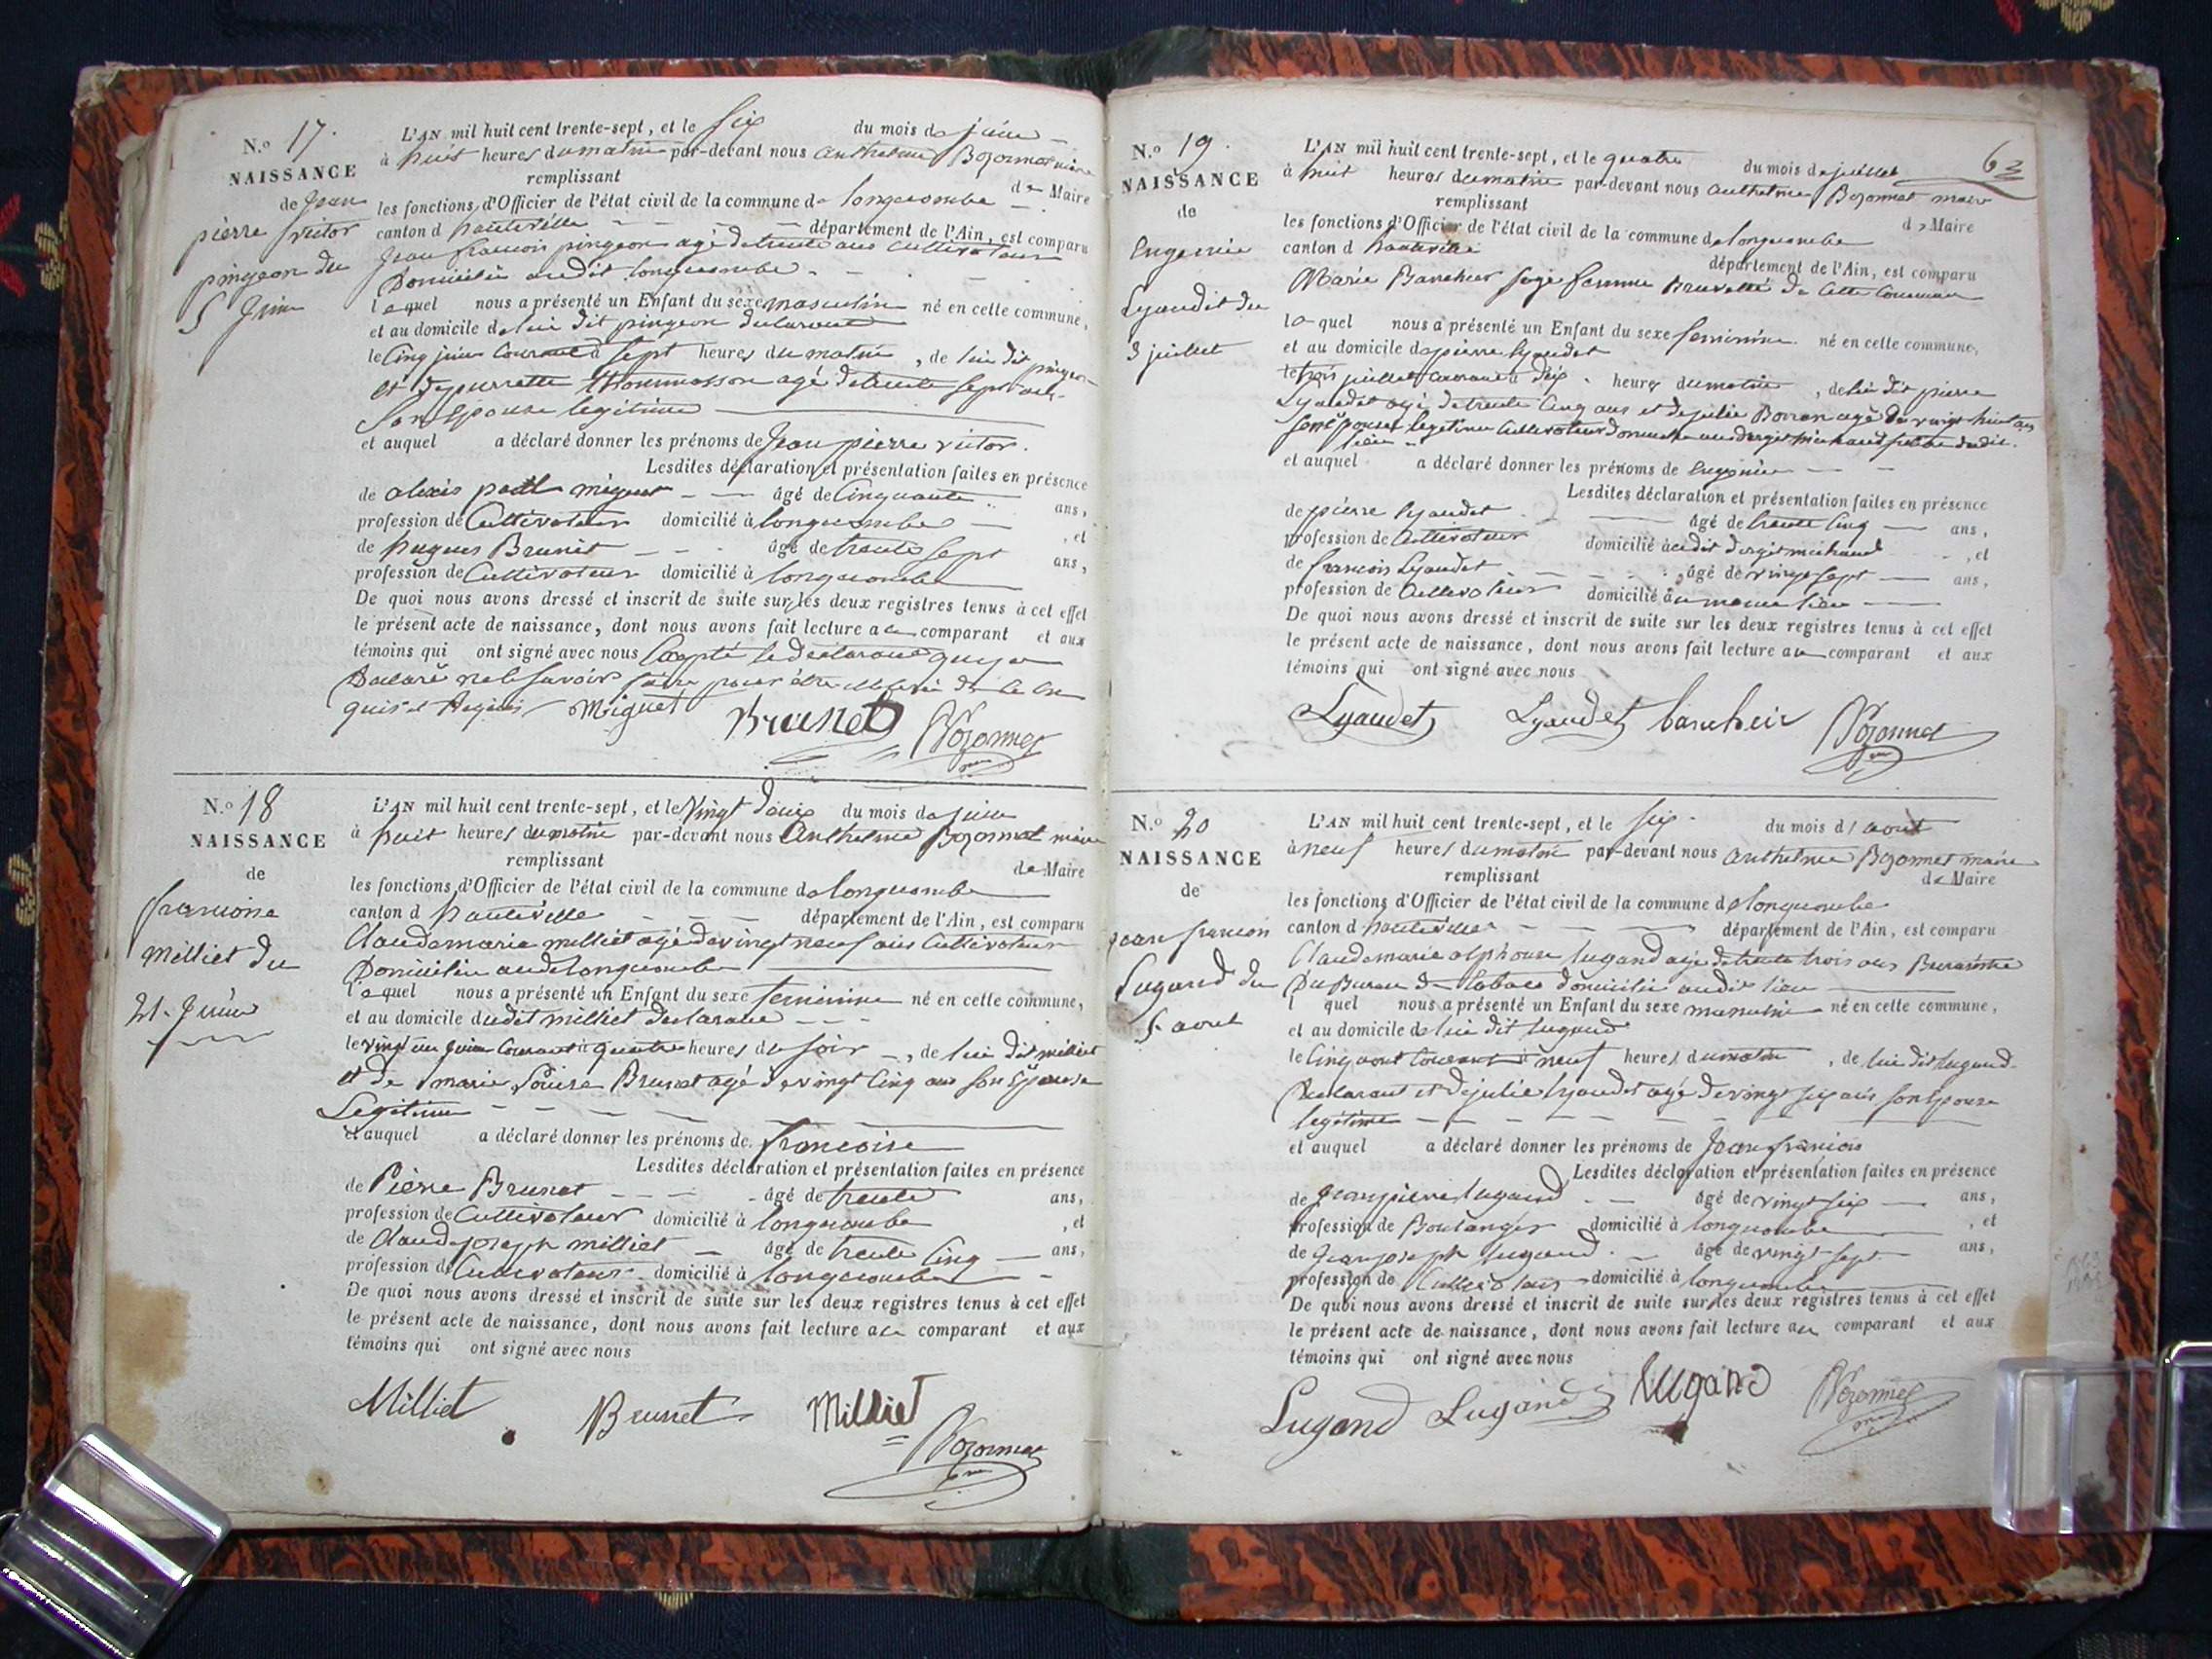 N.o 17.
NAISSANCE
de Jean
pierre victor
pingeon du
5 Juin
L'AN mil huit cent trente-sept, et le six du mois de juin
à huit heures du matin par-devant nous anthelme Bozonnet maire
remplissant de Maire
les fonctions d'Officier de l'état civil de la commune de longecombe
canton d hauteville département de l'Ain, est comparu
Jean francois pingeon agé de trente ans Cultivateur
Domicilié audit longecombe
lequel nous a présenté un Enfant du sexe masculin né en cette commune,
et au domicile de lui dit pingeon declarant
le Cinq juin Courant à sept heures du matin, de lui dit pingeon
et de pierrette thommasson agé de trente sept ans
Son Epouse legitime
et auquel a déclaré donner les prénoms de Jean pierre victor.
Lesdites déclaration et présentation faites en présence
de alexis miguet âgé de Cinquante ans,
profession de Cultivateur domicilié à longecombe, et
de hugues Brunet âgé de trente sept ans,
profession de Cultivateur domicilié à longecombe
De quoi nous avons dressé et inscrit de suite sur les deux registres tenus à cet effet
le présent acte de naissance, dont nous avons fait lecture au comparant et aux
témoins qui ont signé avec nous Excepté le declarant qui a
Declaré ne le savoir faire pour être de ce en
quis et Requis Miguet Brunet Bozonnet
N.o 18
NAISSANCE
de
francoise
Milliet du
21 Juin
L'AN mil huit cent trente-sept, et le Vingt deux du mois de juin
à huit heures du matin par-devant nous Anthelme Bozonnet maire
remplissant de Maire
les fonctions d'Officier de l'état civil de la commune de longecombe
canton d hauteville département de l'Ain, est comparu
Claude marie milliet agé de vingt neuf ans Cultivateur
Domicilié audit longecombe
lequel nous a présenté un Enfant du sexe feminin né en cette commune,
et au domicile dudit milliet declarant
le vingt un Juin Courant à quatre heures du soir, de lui dit milliet
et de marie Louise Brunet agé de vingt Cinq ans son Epouse
Legitime
et auquel a déclaré donner les prénoms de francoise
Lesdites déclaration et présentation faites en présence
de Pierre Brunet âgé de trente ans,
profession de Cultivateur domicilié à longecombe, et
de Claude joseph milliet âgé de trente Cinq ans,
profession de Cultivateur domicilié à longecombe
De quoi nous avons dressé et inscrit de suite sur les deux registres tenus à cet effet
le présent acte de naissance, dont nous avons fait lecture au comparant et aux
témoins qui ont signé avec nous
Milliet Brunet Milliet
Bozonnet
63
N.o 19.
NAISSANCE
de
Eugenie
Lyaudet du
3 juillet
L'AN mil huit cent trente-sept, et le quatre du mois de juillet
à huit heures du matin par-devant nous anthelme Bozonnet maire
remplissant de Maire
les fonctions d'Officier de l'état civil de la commune de longecombe
canton d hauteville département de l'Ain, est comparu
Marie sage femme de Cette Commune
laquel nous a présenté un Enfant du sexe feminin né en cette commune,
et au domicile de pierre Lyaudet
le trois juillet Courant à dix heures du matin, de lui dit pierre
Lyaudet agé de trente Cinq ans et de julie agé de vingt huit ans
son Epouse legitime Cultivateur
lieu
et auquel a déclaré donner les prénoms de Eugenie
Lesdites déclaration et présentation faites en présence
de pierre Lyaudet âgé de trente Cinq ans,
profession de Cultivateur domicilié audit, et
de francois Lyaudet âgé de vingt sept ans,
profession de Cultivateur domicilié au meme lieu
De quoi nous avons dressé et inscrit de suite sur les deux registres tenus à cet effet
le présent acte de naissance, dont nous avons fait lecture au comparant et aux
témoins qui ont signé avec nous
Lyaudet Lyaudet Bozonnet
N.o 20
NAISSANCE
de
jean francois
Lugand du
5 aout
L'AN mil huit cent trente-sept, et le six du mois d'aout
à neuf heures du matin par-devant nous anthelme Bozonnet maire
remplissant de Maire
les fonctions d'Officier de l'état civil de la commune de longecombe
canton d hauteville département de l'Ain, est comparu
Claude marie alphonse lugand agé de trente trois ans Buraliste
Du Bureau de tabacs domicilié audit lieu
l quel nous a présenté un Enfant du sexe masculin né en cette commune,
et au domicile de lui dit lugand
le Cinq aout Courant à neuf heures du matin, de lui dit lugand
Declarant et de julie lyaudet agé de vingt six ans son Epouse
legitime
et auquel a déclaré donner les prénoms de Jean francois
Lesdites déclaration et présentation faites en présence
de Jean pierre lugand âgé de vingt six ans,
profession de Boulanger domicilié à longecombe, et
de Jean joseph lugand âgé de vingt sept ans,
profession de Cultivateur domicilié à longecombe
De quoi nous avons dressé et inscrit de suite sur les deux registres tenus à cet effet
le présent acte de naissance, dont nous avons fait lecture au comparant et aux
témoins qui ont signé avec nous
Lugand Lugand lugand Bozonnet